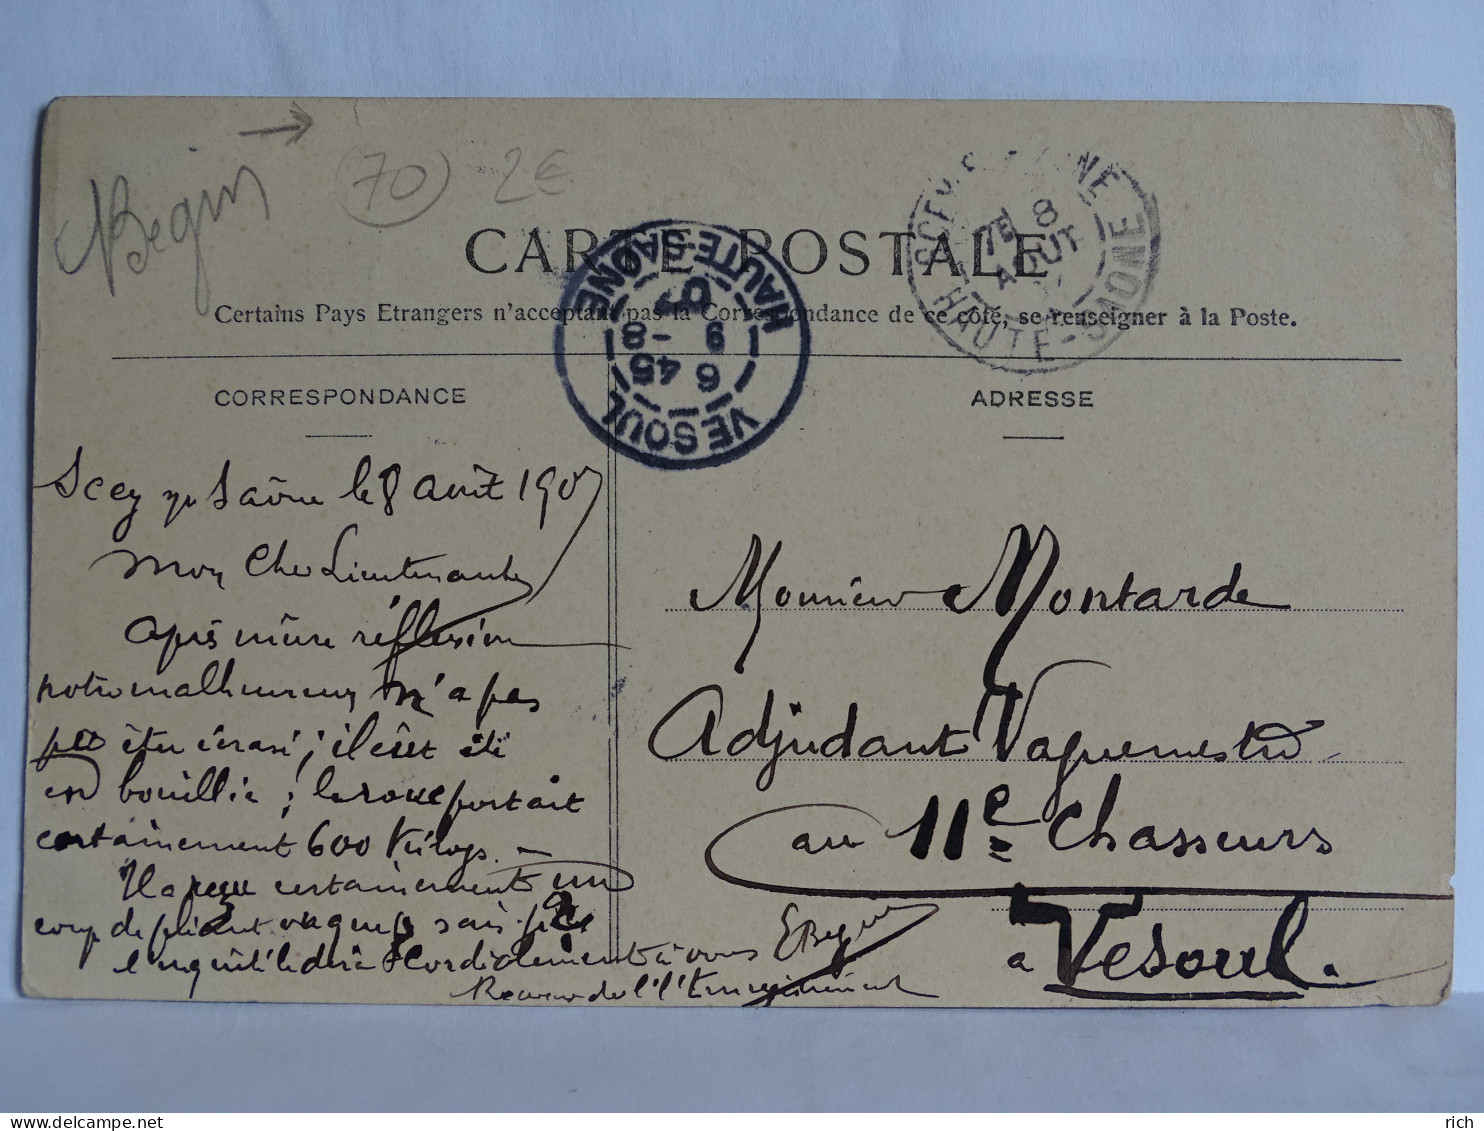 Begin
(70) - 2€
CARTE POSTALE
Certains Pays Etrangers n'acceptant pas la Correspondance de ce côté, se renseigner à la Poste.
SCEY-S-SAONE
7E 8
AOUT
HAUTE-SAONE
VESOUL
6 45
9 -8
07
HAUTE-SAONE
CORRESPONDANCE
ADRESSE
Scey s/ Saône le 8 août 1907
Mon Cher Lieutenant
Après mûre réflexion
notre malheureux n'a pas
pu être écrasé ; il eût été
en bouillie ; la roue portait
certainement 600 kilogs. -
Il a reçu certainement un
coup de pied
Cordialement à vous EBegin
Receveur de l'Enregistrement
Monsieur Montarde
Adjudant Vaguemestre
au 11e Chasseurs
à Vesoul.
rich